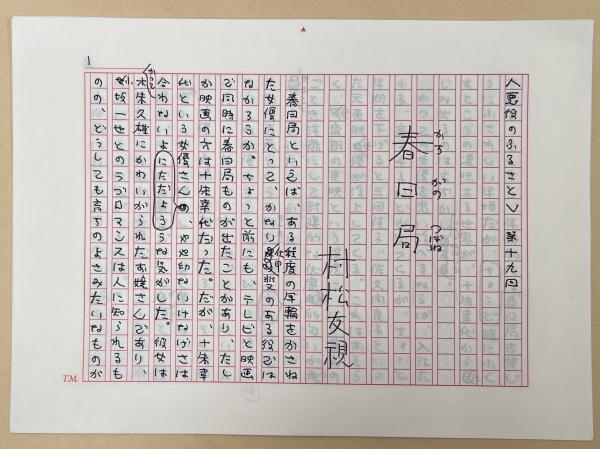 1
人悪役のふるさとV 第十九回
春日局
かすがのつぼね
村松友視
春日局といえば、ある程度の年輪をかさね
た女優にとって、かなり甲斐のある役では
なかろうか。ちょっと前にも、テレビと映画
で同時に春日局ものが出たことがあり、たし
か映画の方は十朱幸代だった。だが、十朱幸
代という女優さんの、やや幼ないけなげさは
合わないようにただよう な気がした。彼女は
かつて
木朱久雄にかわいがられたお嬢さんであり、
坂一也とのラブロマンスは人に知られるも
のの、どうしても育ちのよさみたいなものが
T.M.